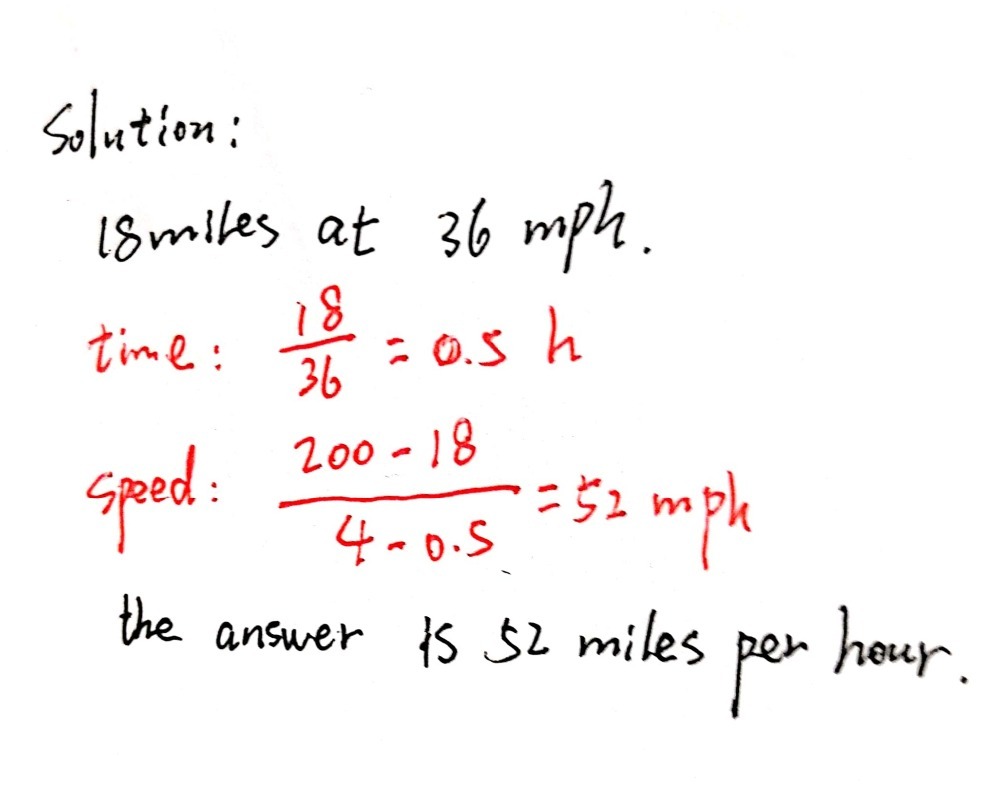 Solution:
18 miles at 36 mph.
time: 18/36 = 0.5 h
speed: (200-18)/(4-0.5) = 52 mph
the answer is 52 miles per hour.